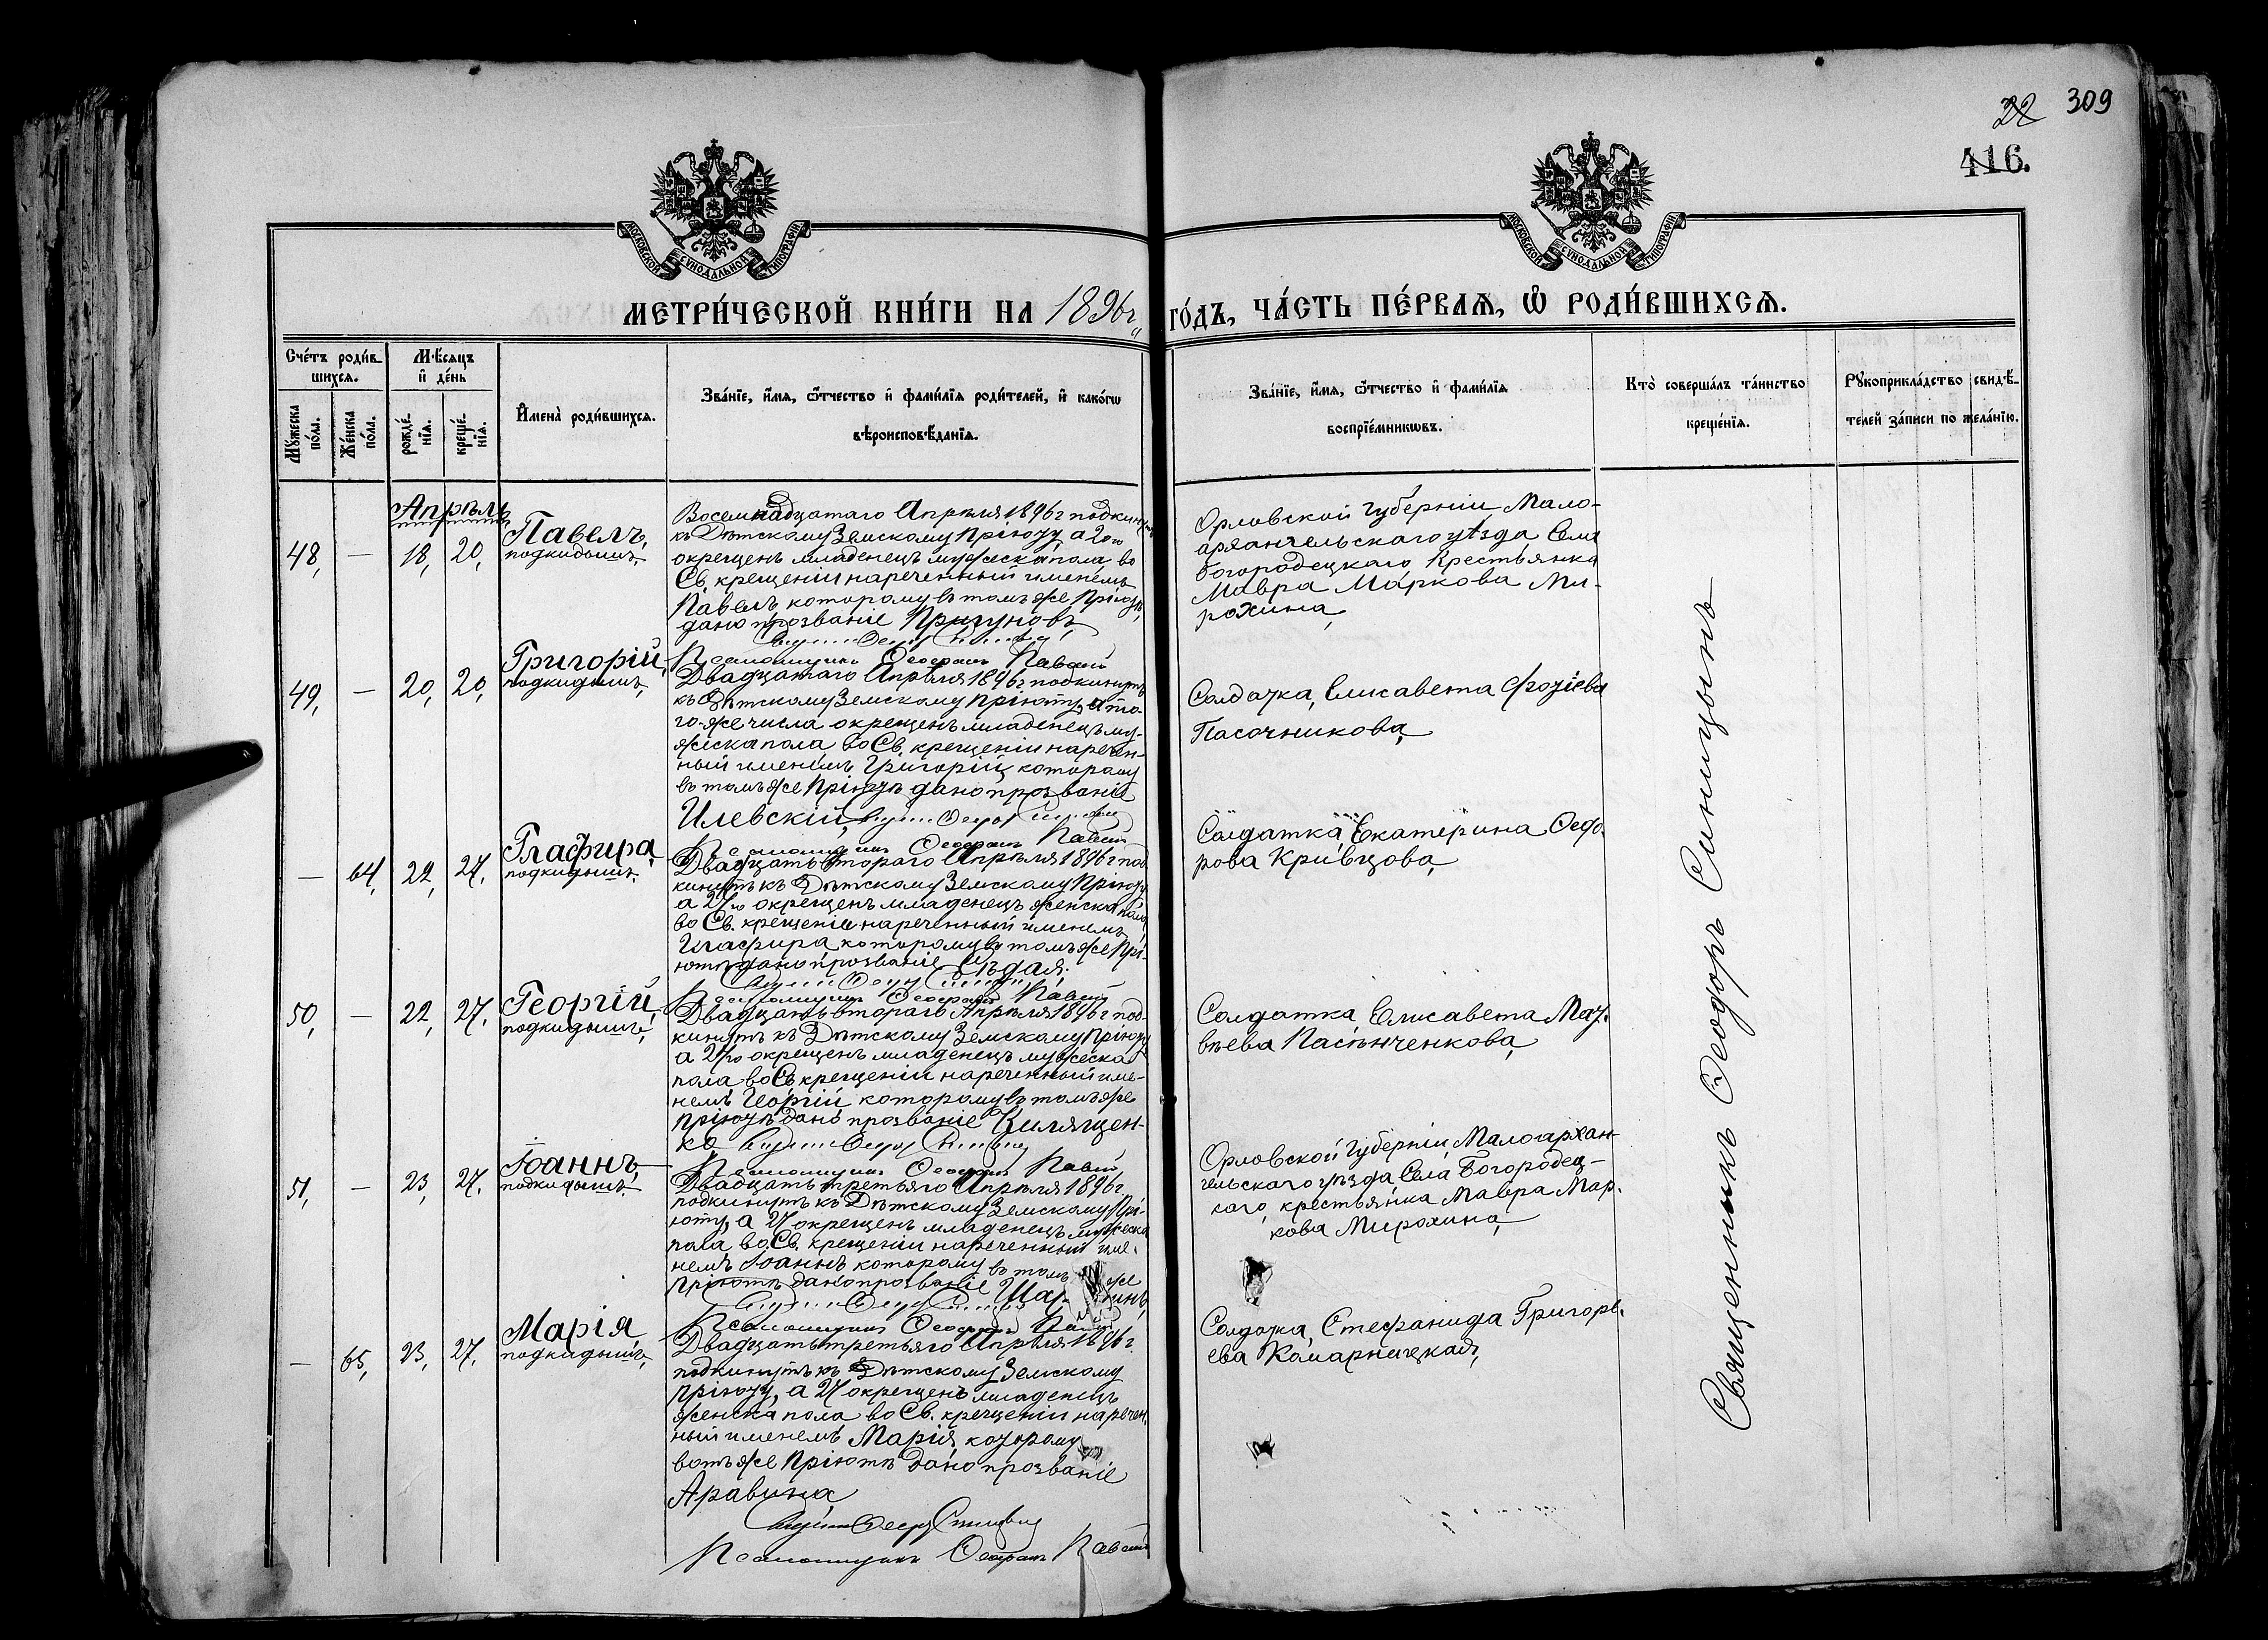 22 309
416.
МОСКОВСКОЙ СѴНОДАЛЬНОЙ ТИПОГРАФІИ
МОСКОВСКОЙ СѴНОДАЛЬНОЙ ТИПОГРАФІИ
МЕТРИ́ЧЕСКОЙ КНИ́ГИ НА 1896 г. ГО́ДЪ, ЧА́СТЬ ПЕ́РВАѦ, Ѡ҆ РОДИ́ВШИХСѦ.
Сче́тъ роди́в-
шихсѧ.
Мѣ́сѧцъ
и҆ де́нь
Мꙋ́жеска
по́ла.
Же́нска
по́ла.
рожде́-
нїѧ.
креще́-
нїѧ.
И҆мена̀ роди́вшихсѧ.
Зва́нїе, и҆́мѧ, ѻ҆́тчество и҆ фами́лїѧ роди́телей, и҆ како́гѡ
вѣроисповѣ́данїѧ.
Зва́нїе, и҆́мѧ, ѻ҆́тчество и҆ фами́лїѧ
воспрїе́мникѡвъ.
Кто̀ соверша́лъ та́инство
креще́нїѧ.
Рꙋкоприкла́дство свидѣ́-
телей за́писи по жела́нїю.
Апрѣль
48, — 18, 20,
Павелъ,
подкидышъ,
Восемнадцатаго Апрѣля 1896 г подкинутъ
къ Дѣтскому Земскому Пріюту, а 20го
окрещенъ младенецъ мужеска пола во
Св. крещеніи нареченный именемъ
Павелъ которому въ томъ же Пріютѣ
дано прозваніе Пригуновъ,
Орловской Губерніи Мало-
архангельскаго уѣзда, Села
Богородецкаго, Крестьянка
Мавра Маркова Ми-
рохина,
Псаломщикъ
49, — 20, 20,
Григорій,
подкидышъ,
Двадцатаго Апрѣля 1896 г подкинутъ
къ Дѣтскому Земскому Пріюту, а то-
го-же числа окрещенъ младенецъ му-
жеска пола, во Св. крещеніи наречен-
ный именемъ Григорій, которому
въ томъ же Пріютѣ дано прозваніе
Илевскій,
Солдатка, Елисавета
Пасочникова,
Псаломщикъ
— 64, 22, 27,
Глафира,
подкидышъ,
Двадцать втораго Апрѣля 1896 г под-
кинутъ къ Дѣтскому Земскому Пріюту
а 27го окрещенъ младенецъ женска пола,
во Св. крещеніи нареченный именемъ
Глафира, которому въ томъ же Прі-
ютѣ дано прозваніе
Солдатка, Екатерина Ѳедо-
рова Кривцова,
Псаломщикъ
50, — 22, 27,
Георгій,
подкидышъ,
Двадцать втораго Апрѣля 1896 г под-
кинутъ къ Дѣтскому Земскому Пріюту
а 27го окрещенъ младенецъ мужеска
пола, во Св крещеніи нареченный име-
немъ Георгій, которому въ томъ же
Пріютѣ дано прозваніе
Солдатка Елисавета Мат-
вѣева
Псаломщикъ
51, — 23, 27,
Іоаннъ,
подкидышъ,
Двадцать третьяго Апрѣля 1896 г.
подкинутъ къ Дѣтскому Земскому Прі-
юту, а 27 окрещенъ младенецъ мужеска
пола во Св. крещеніи нареченный име-
немъ Іоаннъ которому въ томъ же
Пріютѣ дано прозваніе
Орловской Губерніи Малоархан-
гельскаго уѣзда, Села Богородец-
каго, крестьянка Мавра Мар-
кова Мирохина,
Псаломщикъ
— 65, 23, 27,
Марія
подкидышъ,
Двадцать третьяго Апрѣля 1896 г.
подкинутъ къ Дѣтскому Земскому
Пріюту, а 27 окрещенъ младенецъ
женска пола во Св. крещеніи наречен-
ный именемъ Марія, которому
въ томъ же Пріютѣ дано прозваніе
Аравина,
Солдатка, Стефанида Григорь-
ева Комарницкая,
Псаломщикъ
Священникъ Ѳеодоръ Синицынъ